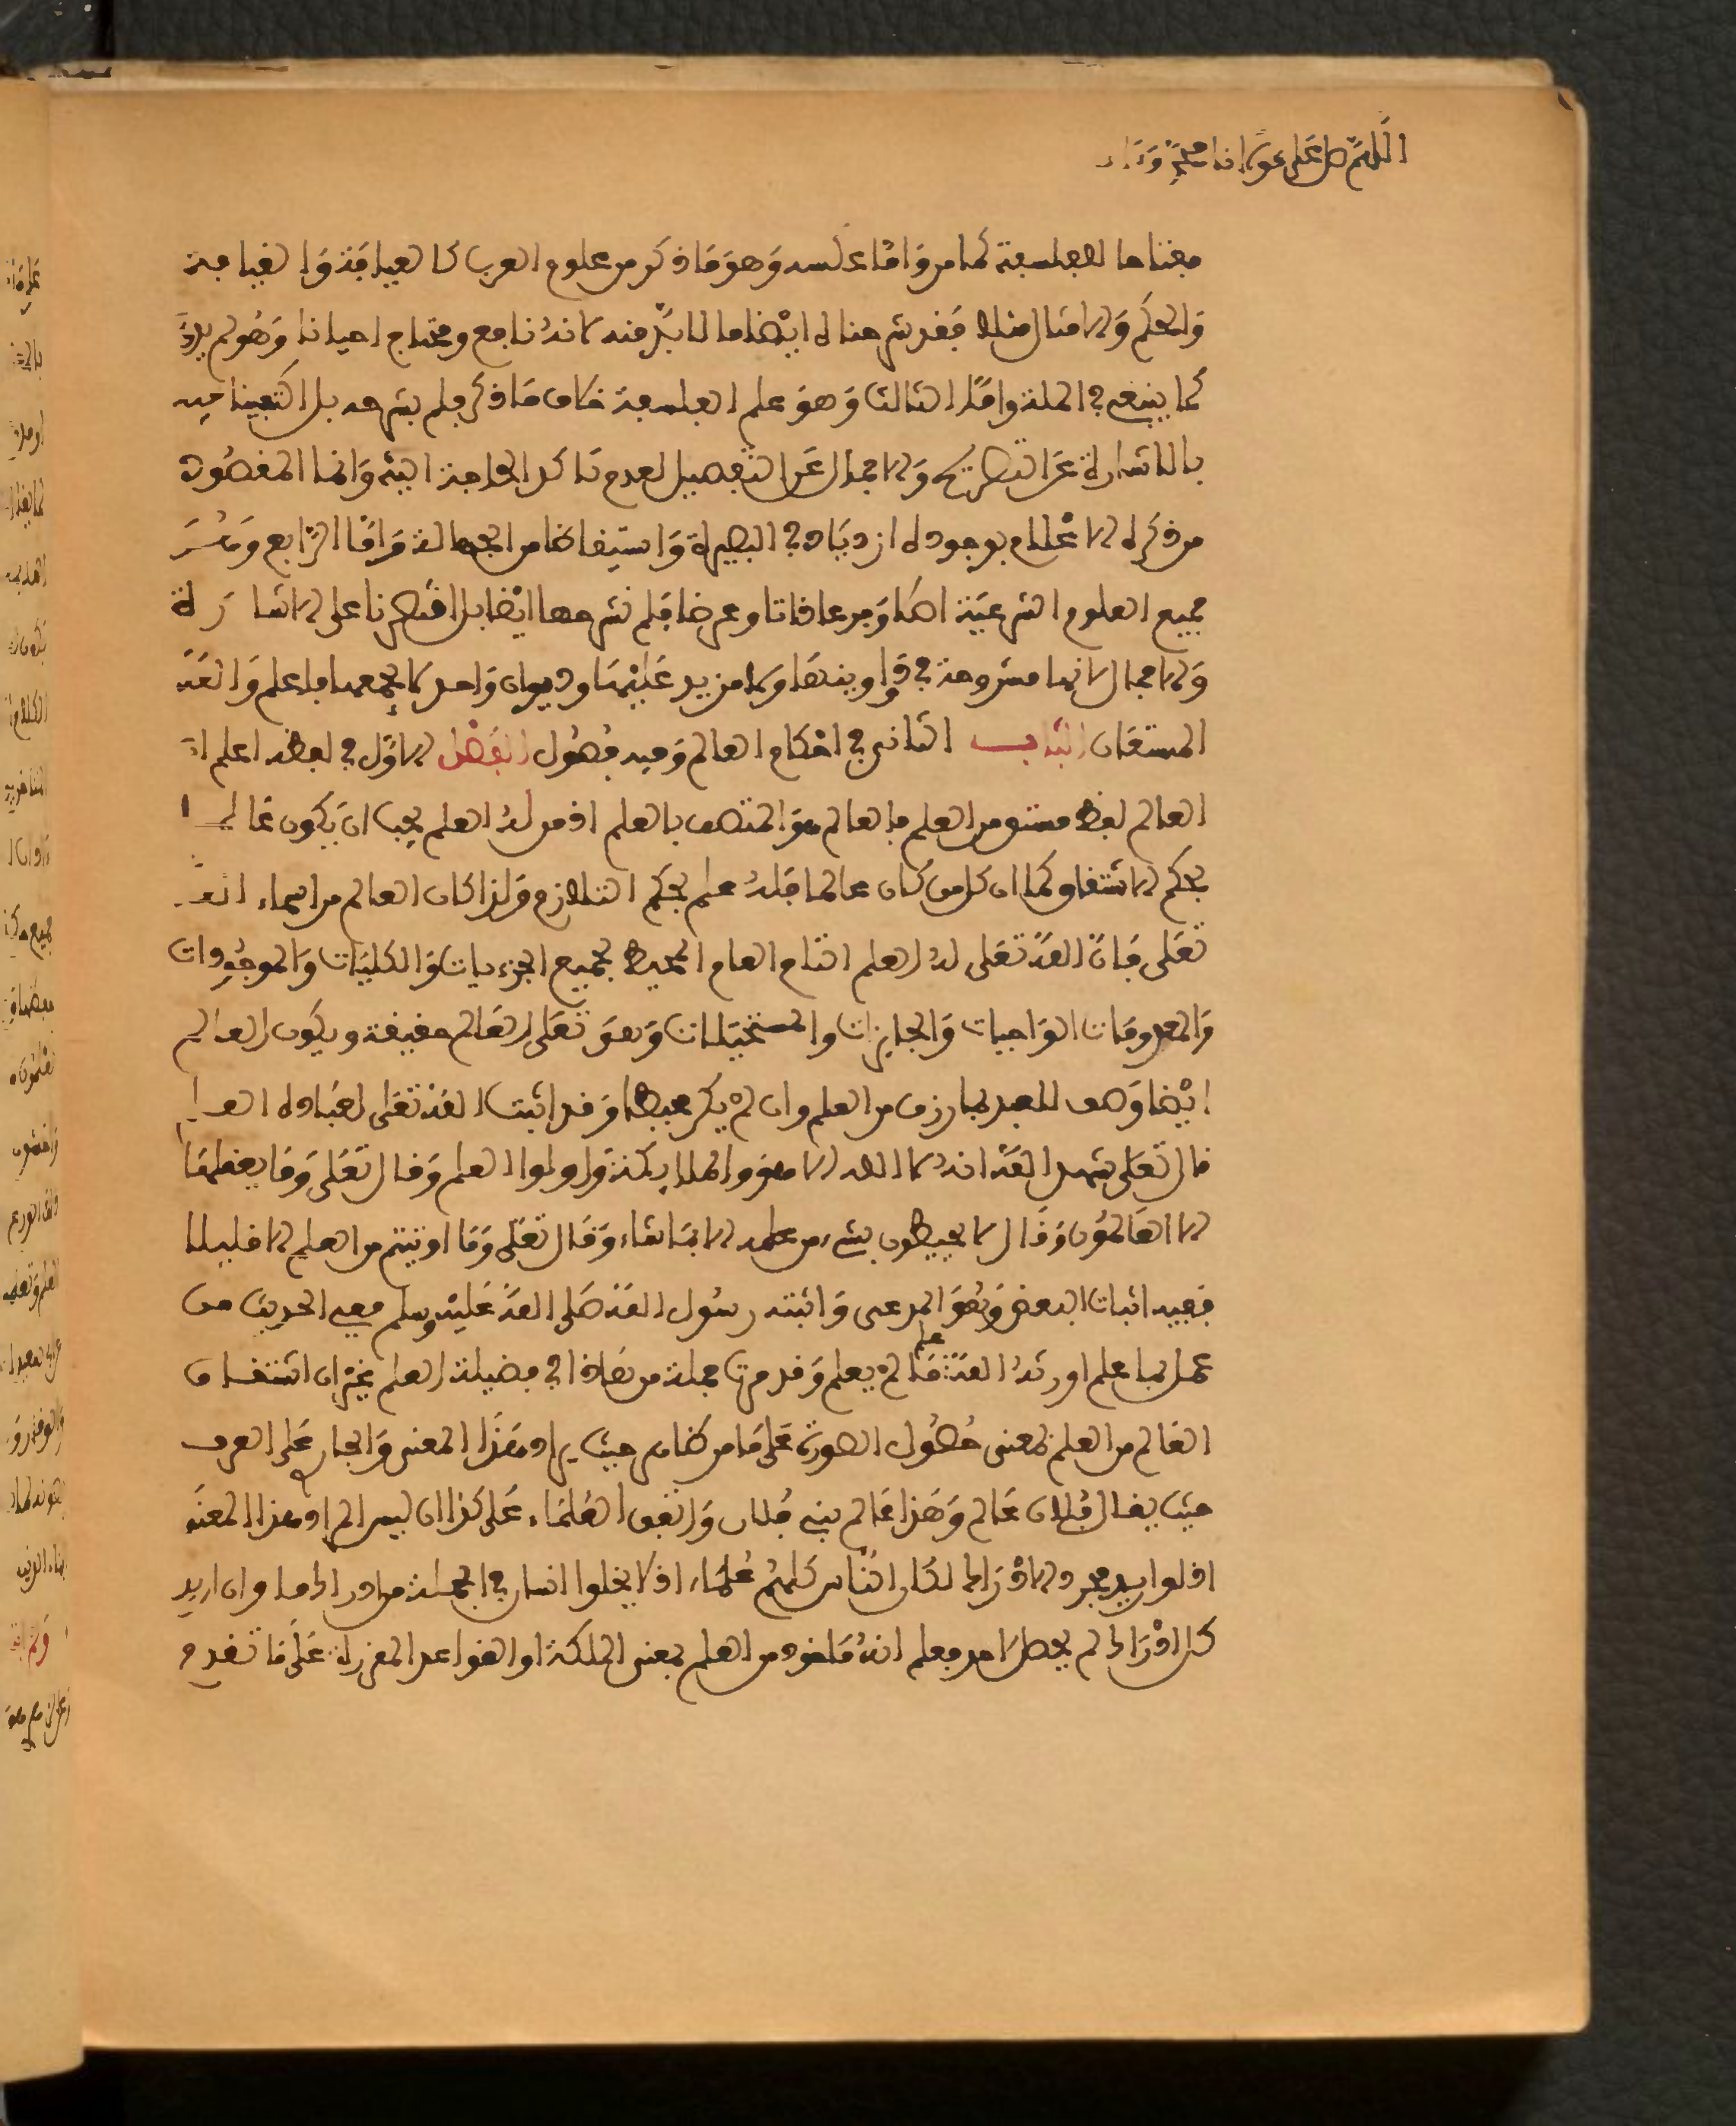 اللهم صل على مولانا محمد وءاله
معناها الفلسفة كما مر وامّا عكسه وهو ما ذكر من علوم العرب كالعيافة والقيافة
والحكم والامثال مثلا فقد شرحنا له ايضا ما لابدّ منه لانه نافع ومحتاج احيانا وهو لم يلاق
كما ينبغي في الملة وامّا الثالث وهو علم الفلسفة خلاف ما ذكر فلم نشرحه بل اكتفينا فيه
بالاشارة عن التصريح والاجمال عن التفصيل لعدم تاكد الحاجة اليه وانما المقصود
من ذكره الاعلام بوجوده ازديادا في البصيرة واستيقاظا من الجهالة وامّا الرابع
جميع العلوم الشرعية اصلا وفرعا ذاتا وعرضا فلم نشرحها ايضا بل اقتصرنا على الاشارة
والاجمال لانها مشروحة في دواوينها ولا مزيد عليها وديوان واحد لا يجمعها فاعلم والله
المستعان الباب الثاني في احكام العالم وفيه فصول الفصل الاول في لفظه اعلم انّ
العالم لفظ مشتق من العلم فالعالم هو المتصف بالعلم اذ من له العلم يجب ان يكون عالما
بحكم الاشتقاق كما ان كل من كان عالما فله علم بحكم التلازم ولذا كان العالم من اسماء الله
تعلى فان الله تعلى له العلم التام العام المحيط بجميع الجزءيات والكليات والموجودات
والمعدومات الواجبات والجايزات والمستحيلات وهو تعلى العالم حقيقة ويكون العالم
ايضا وصف للعبد بما رزق من العلم وان لم يكن محيطا وقد اثبت الله تعلى لعباده العلم
قال تعلى شهد الله انه لا اله الا هو والملايكة واولوا العلم وقال تعلى وما يعقلها
الا العالمون وقال لا يحيطون بشيء من علمه الا بما شاء وقال تعلى وما اوتيتم من العلم الا قليلا
ففيه اثبات البعض وهو المدعى واثبته رسول الله صلى الله عليه وسلم ففي الحديث من
عمل بما علم اورثه الله علم ما لم يعلم وقد مرت جملة من هذا في فضيلة العلم غير ان اشتقاق
العالم من العلم بمعنى حصول الصورة على ما مر ظاهر حيث يراد هذا المعنى والجار على العرف
حيث يقال فلان عالم وهذا عالم بني فلان واتفق العلماء على كذا ان ليس المراد هذا المعنى
اذ لو اريد مجرد الادراك لكان الناس كلهم علماء اذ لا يخلوا انسان في الجملة من ادراك ما وان اريد
كل ادراك لم يحصل لاحد فعلم انه ماخوذ من العلم بمعنى الملكة او القواعد المقررة على ما تقدم